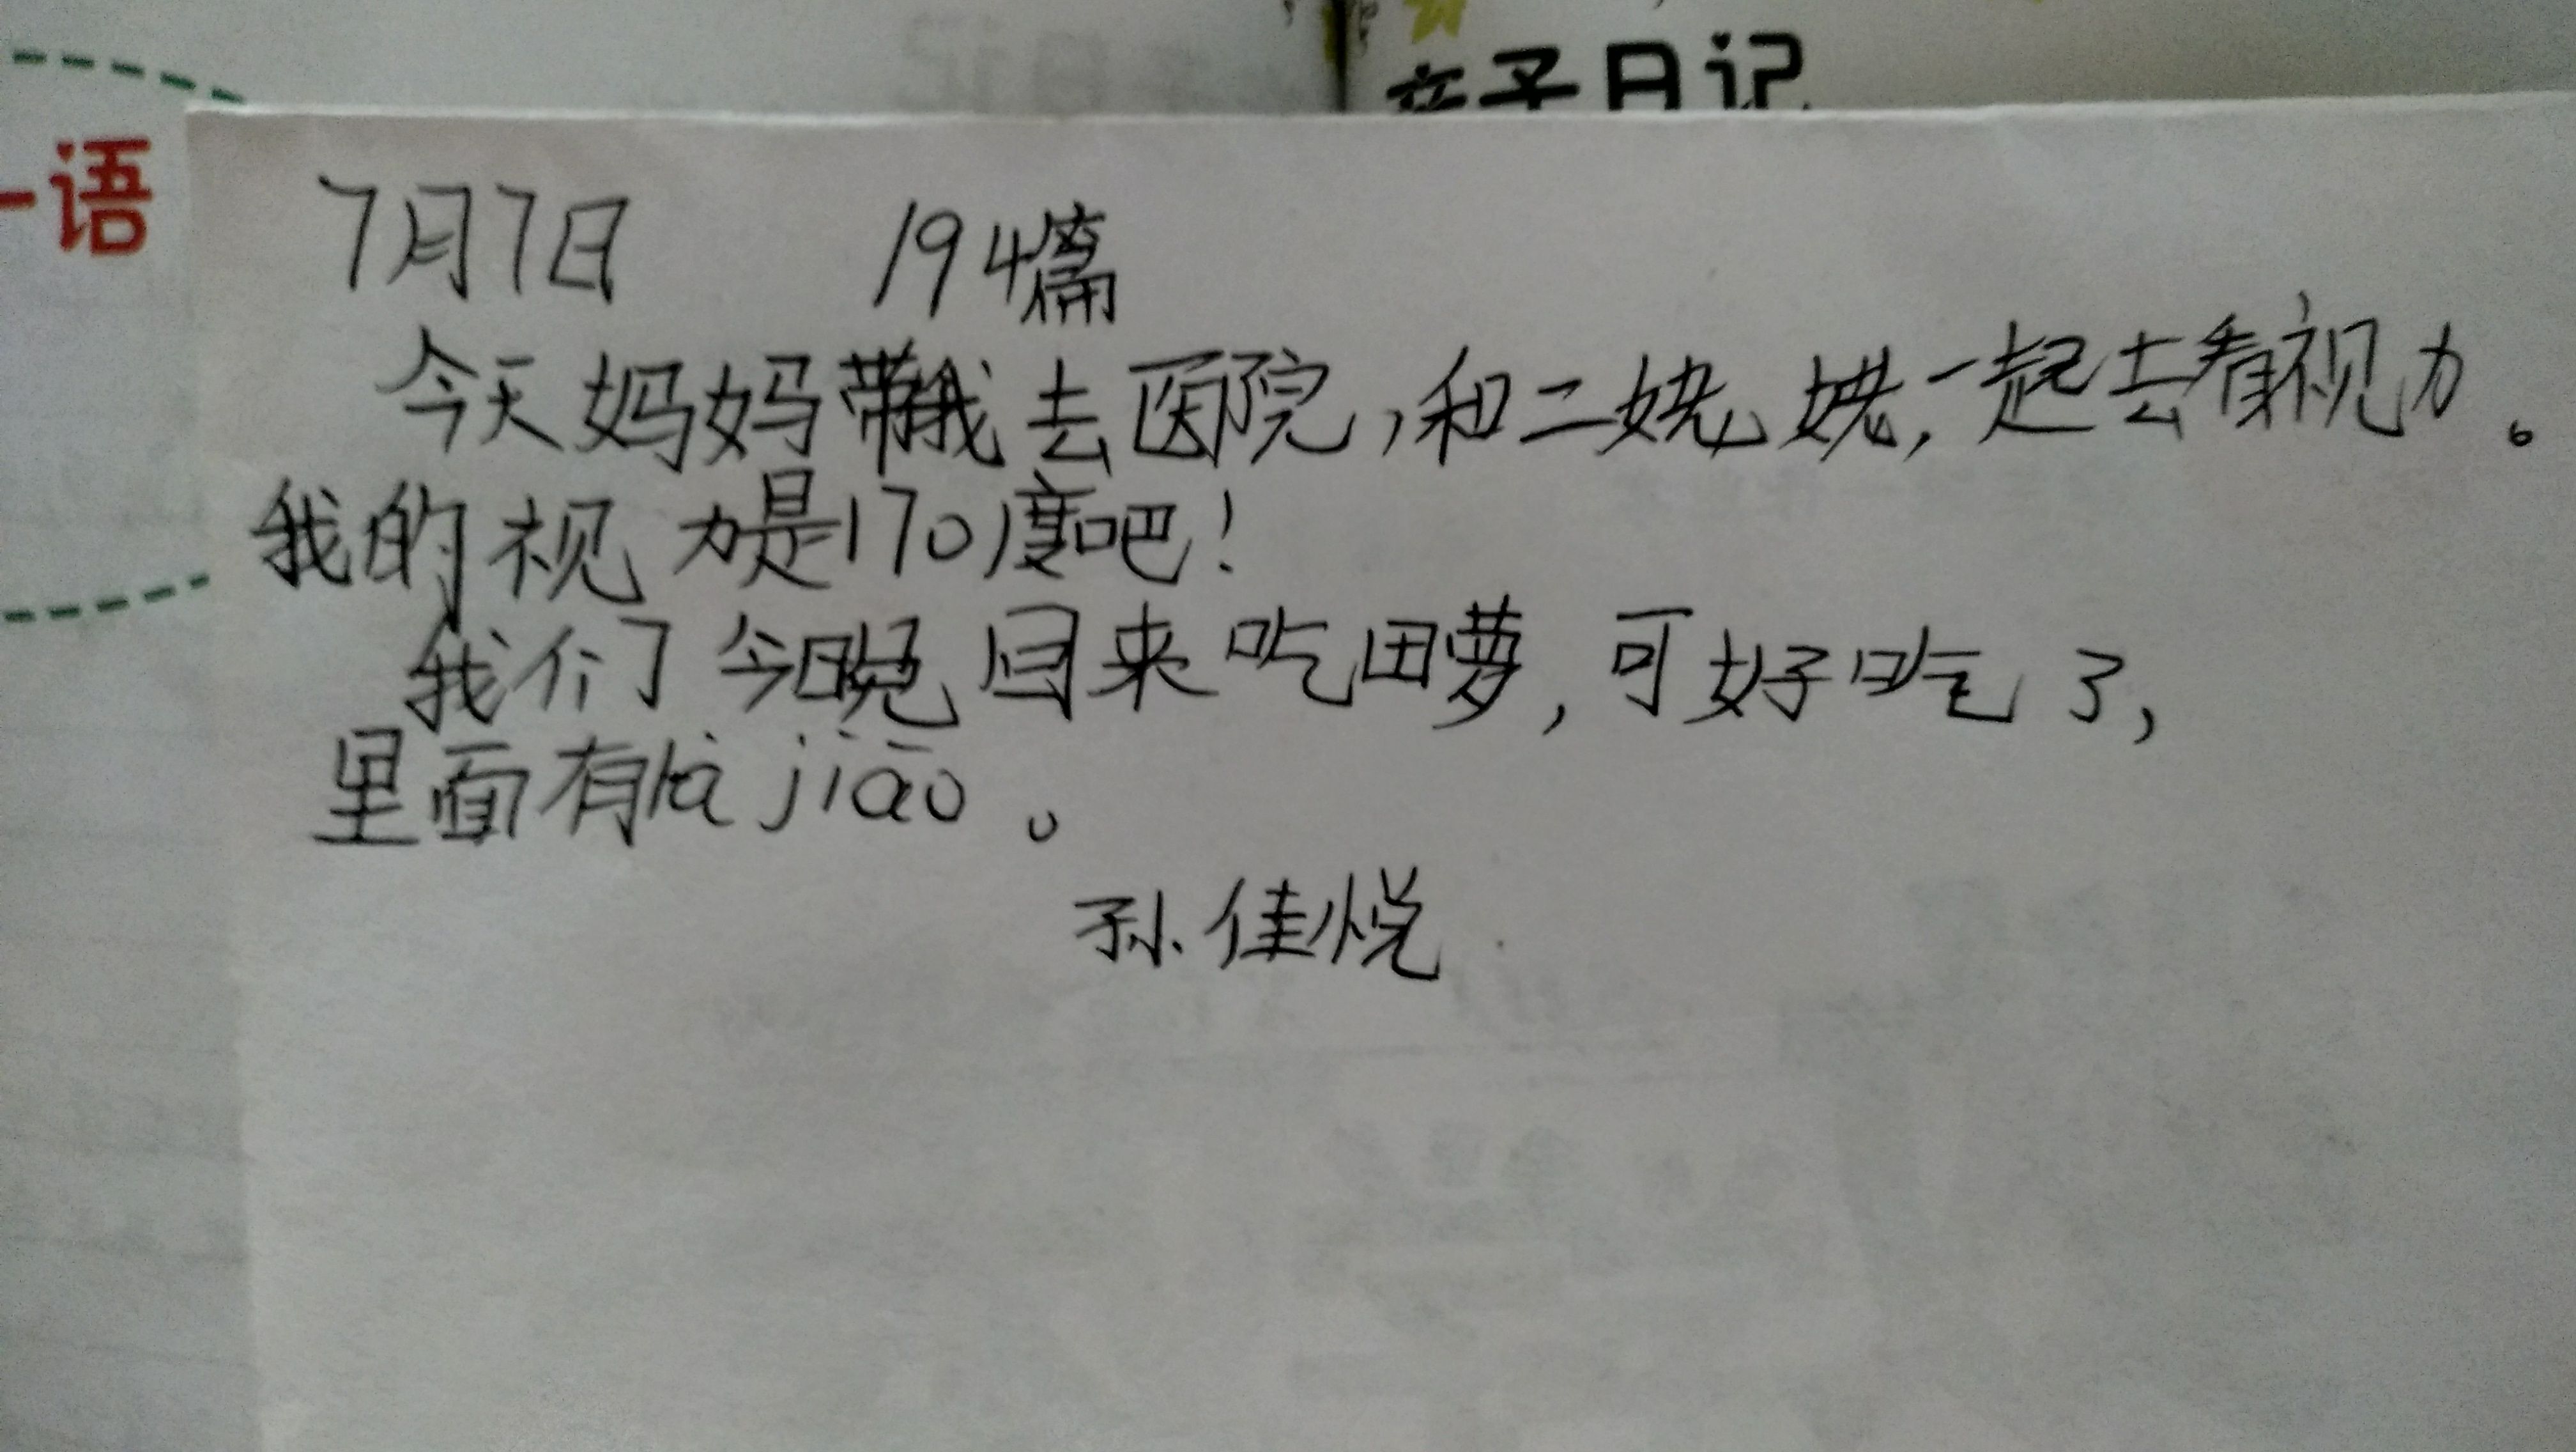 亲子日记
一语
7月7日 194篇
今天妈妈带我去医院,和二姥姥,一起去看视力。
我的视力是170度吧!
我们今晚回来吃田萝,可好吃了,
里面有là jiāo。
孙佳悦